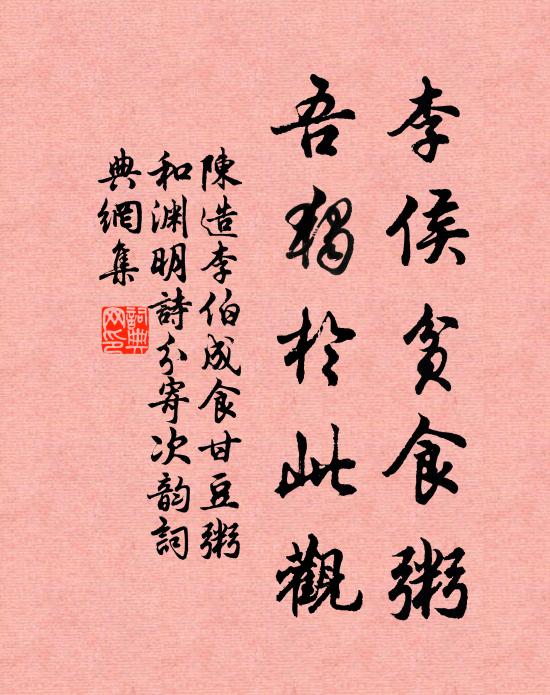 李侯貧食粥
吾獨於此觀
陳造李伯成食甘豆粥
和渊明詩分寄次韵詞
典網集
詞典网印